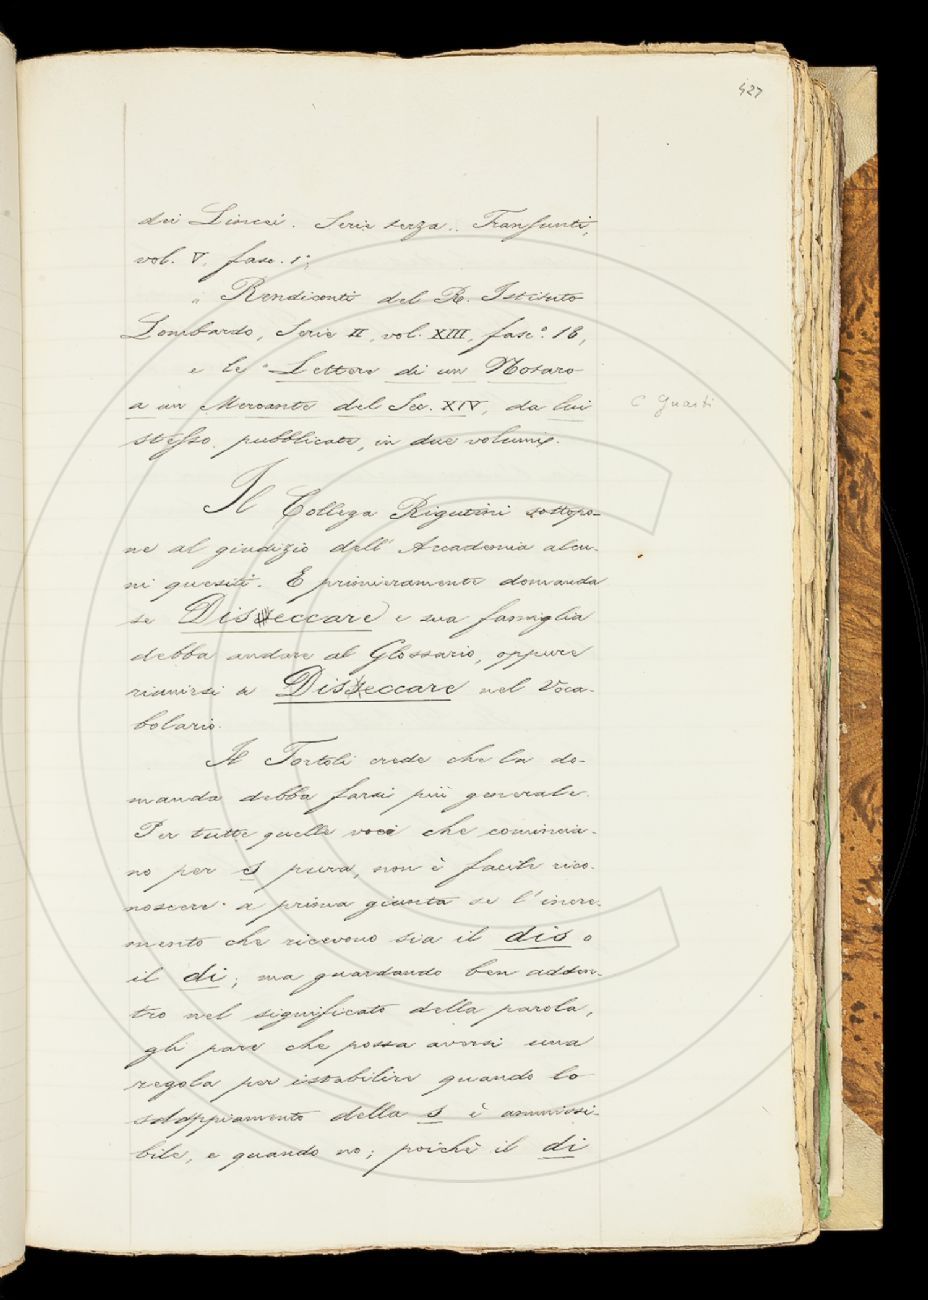 427
dei Lincei. Serie terza. Transunti,
vol. V. fasc. 1°;
" Rendiconti del R. Istituto
Lombardo, Serie II, vol. XIII, fasc.° 18,
e le "Lettere di un Notaro
a un Mercante del Sec. XIV, da lui
C Guasti
stesso pubblicate, in due volumi.
Il Collega Rigutini sottopo-
ne al giudizio dell'Accademia alcu-
ni quesiti. E primieramente domanda
se Diseccare e sua famiglia
debba andare al Glossario, oppure
riunirsi a Disseccare nel Voca-
bolario.
Il Tortoli crede che la do-
manda debba farsi più generale.
Per tutte quelle voci che comincia-
no per s pura, non è facile rico-
noscere a prima giunta se l'incre-
mento che ricevono sia il dis o
il di; ma guardando ben adden-
tro nel significato della parola,
gli pare che possa aversi una
regola per istabilire quando lo
sdoppiamento della s è ammissi-
bile, e quando no; poichè il di